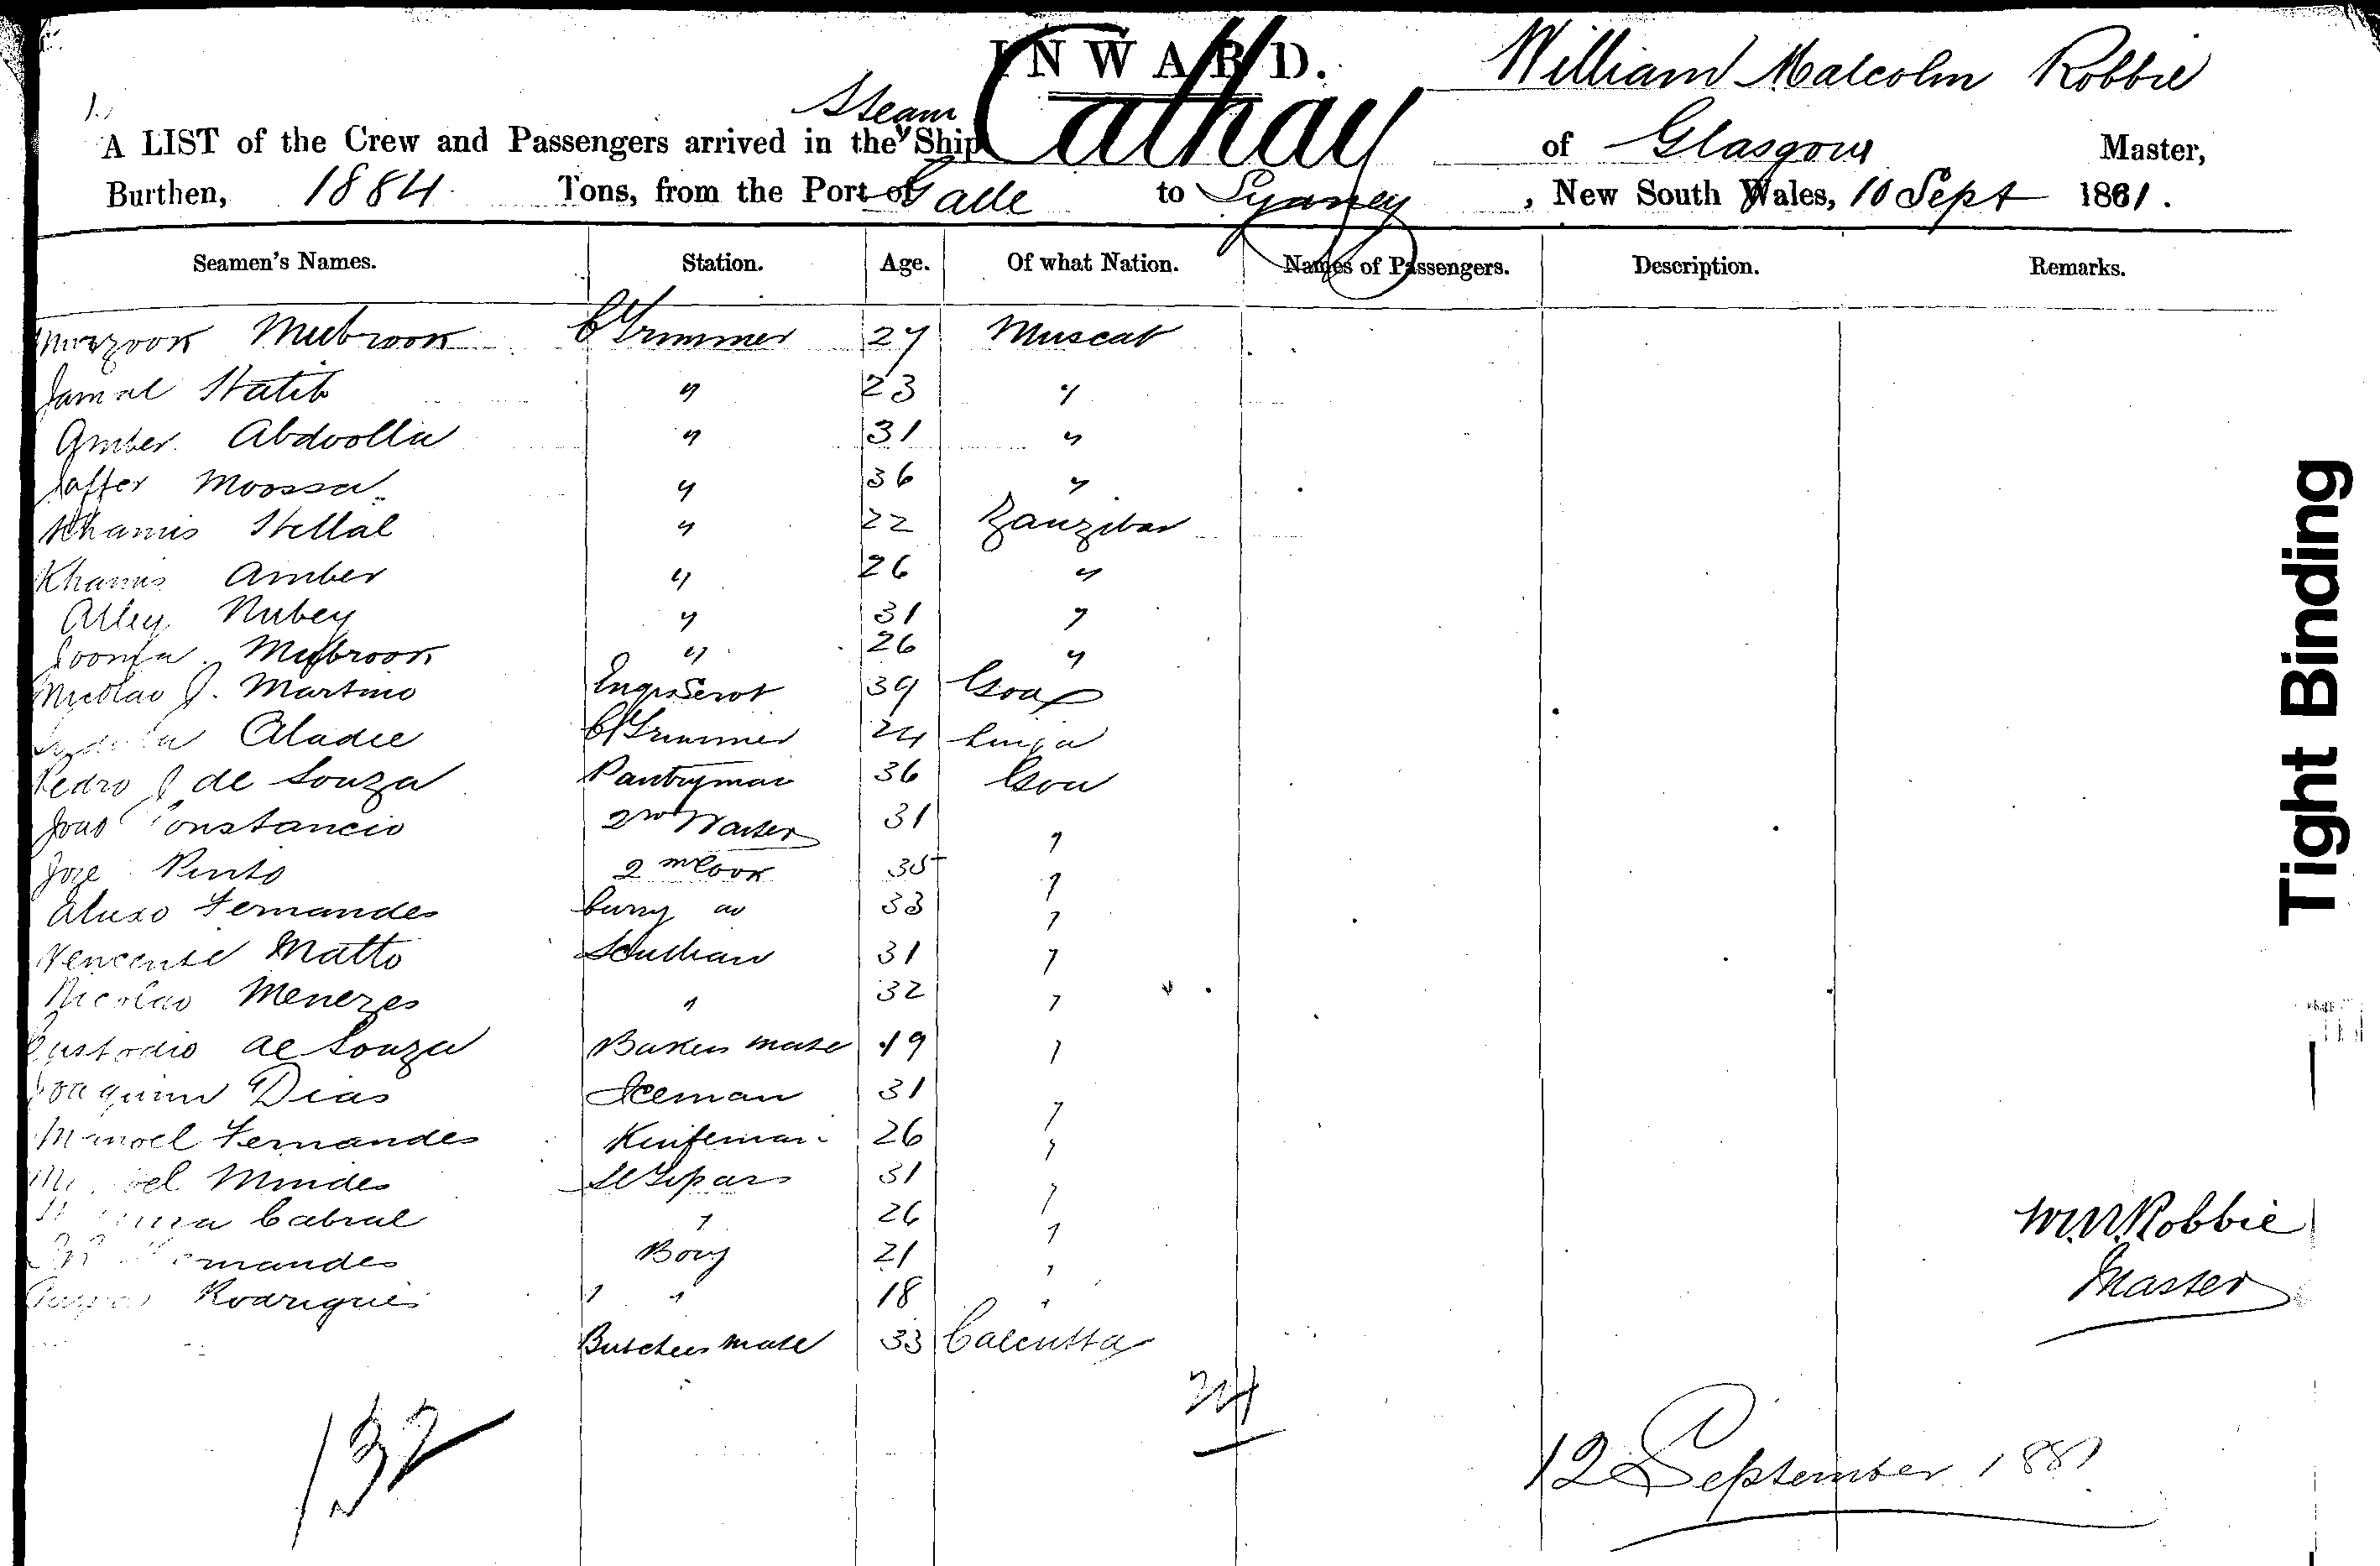 INWARD.
William Malcolm Robbie
A LIST of the Crew and Passengers arrived in the Steam Ship Cathay of Glasgow Master,
Burthen, 1884 Tons, from the Port of Galle to Sydney, New South Wales, 10 Sept 1881.
Seamen's Names. Station. Age. Of what Nation. Names of Passengers. Description. Remarks.
Murzook Mubrook C Trimmer 27 Muscat
Jamal Statib " 23 "
Amber Abdoolla " 31 "
Jaffer Moossa " 36 "
Khamis Hellal " 22 Zanzibar
Khamis Amber " 26 "
Alley Nubey " 31 "
Jooma Mubrook " 26 "
J. Martino Engrs Servt 39 Goa
Aladee C Trimmer 24 Linga
Pedro J de Souza Pantryman 36 Goa
Joao Constancio 2nd Waiter 31 "
Joze Pinto 2nd Cook 35 "
Aluxo Fernandes Curry do 33 "
Vencente Matto 31 "
Nicolao Menezes " 32 "
Custodio de Souza Bakers mate 19 "
Joaquim Dias Iceman 31 "
Manoel Fernandes Knifeman 26 "
Mendes Topars 31 "
Cabral " 26 "
Boy 21 "
Rodrigues " " 18 "
Butchers mate 33 Calcutta
W.M. Robbie
Master
24
132
12 September 1881
Tight Binding